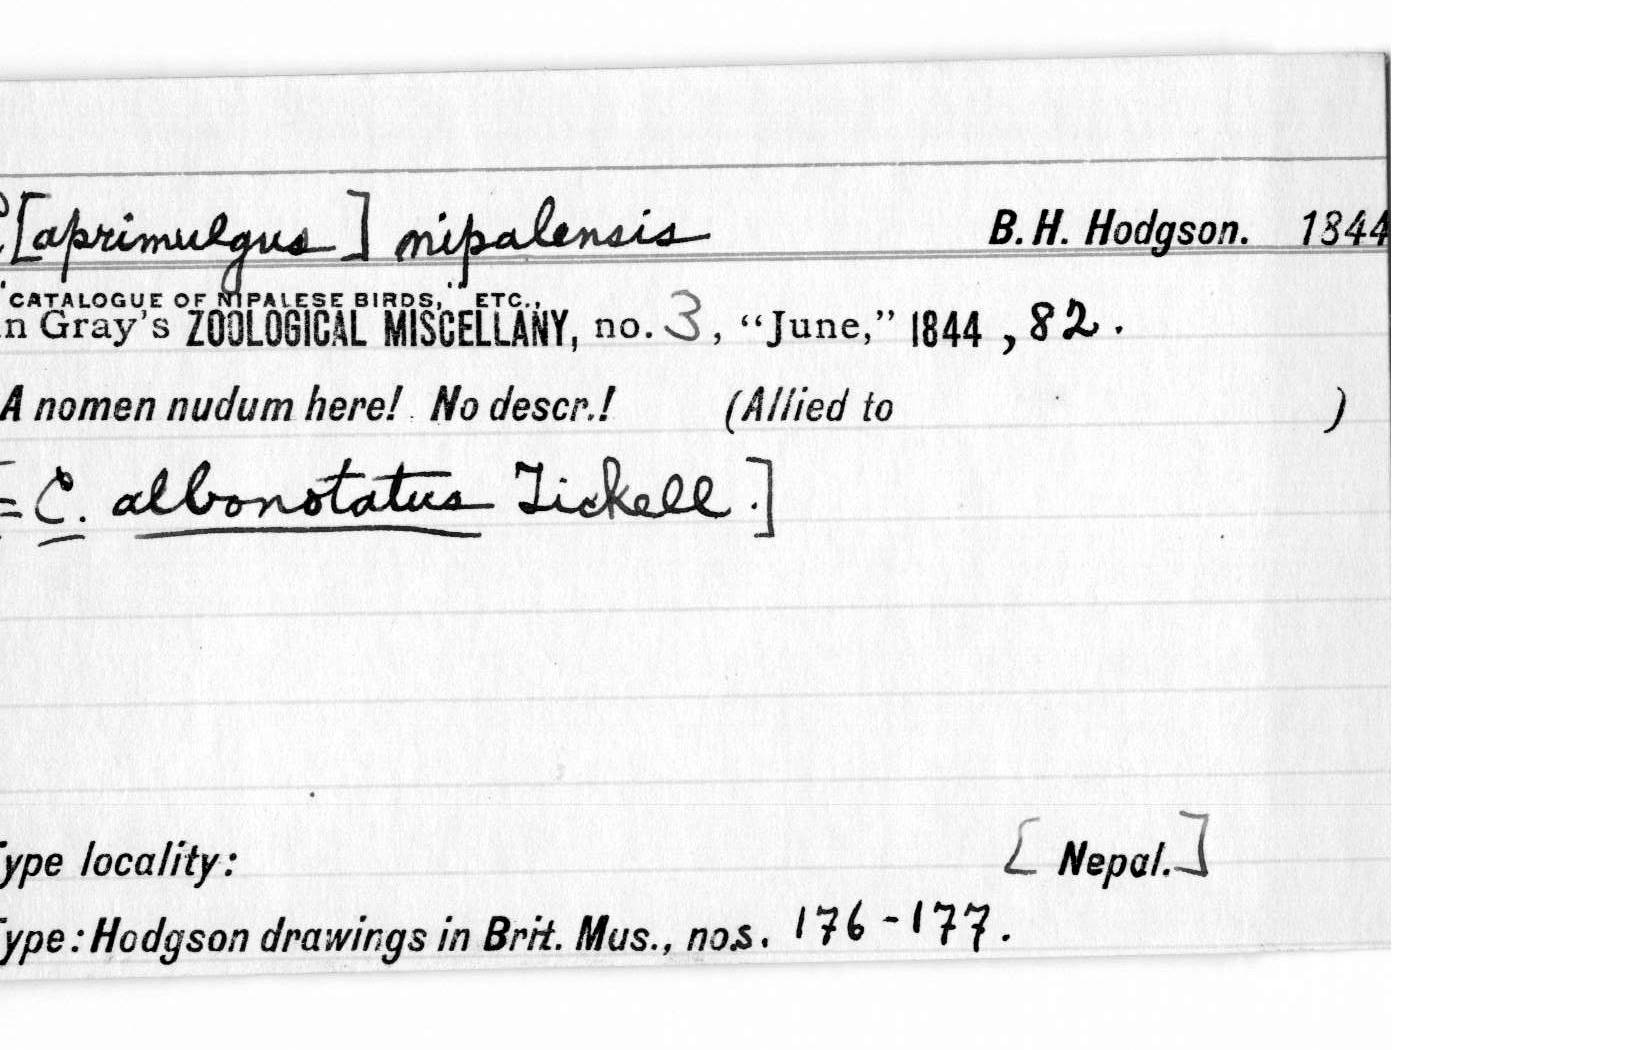 C[aprimulgus] nipalensis B. H. Hodgson. 1844
"CATALOGUE OF NIPALESE BIRDS," ETC.,
n Gray's ZOOLOGICAL MISCELLANY, no. 3, "June," 1844, 82.
A nomen nudum here! No descr.! (Allied to )
= C. albonotatus Tickell.]
ype locality: [Nepal.]
ype: Hodgson drawings in Brit. Mus., nos. 176-177.